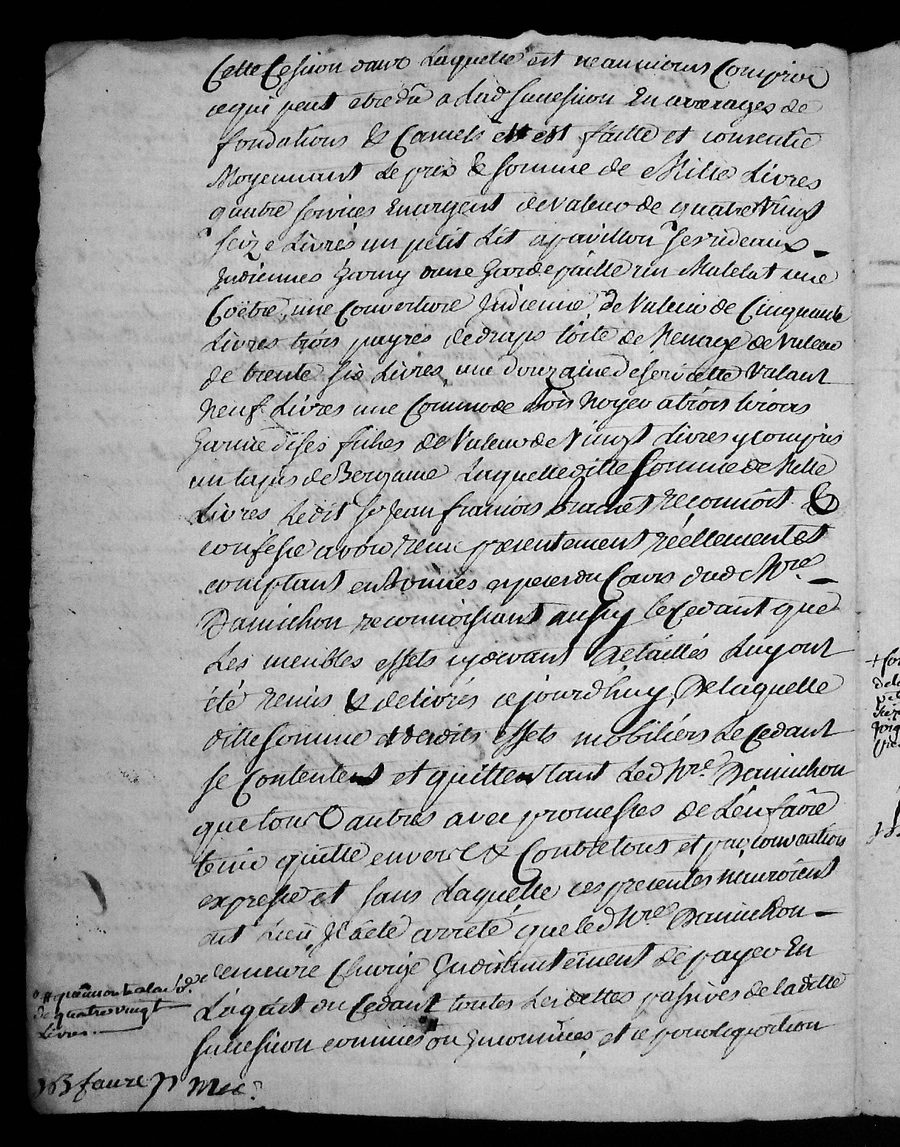 Cette Cession dans Laquelle est neanmoins Compris
ce qui peut etre dû a lad succession En arrerages de
fondations & Camels est faitte et consentie
Moyennant Le prix & somme de Mille Livres
quatre services En argent de valeur de quatre Vingt
seize Livres un petit Lit a pavillon ses rideaux
Indiennes Garny d'une Gardepaille un Matelat une
Coëtre, une Couverture Indienne, de Valeur de Cinquante
Livres trois payres de draps toile de Menage de Valeur
de trente six Livres, une douzaine de serviette Valant
Neuf Livres une Commode bois Noyer a trois tiroirs
Garnie de ses fiches de Valeur de Vingt Livres y compris
un tapis de Bergame Laquelle ditte Somme de Mille
Livres Ledit Sr Jean francois reconnoit &
confesse avoir recu presentement réellement et
comptant en bonnes especes du Cours dud Mre
Danichon reconnoissant aussy le Cedant que
Les meubles effets cydevant détaillés Luy ont
été remis & delivrés cejourdhuy, De laquelle
ditte Somme et desdits effets mobiliers Le Cedant
se Contentent et quittent tant Led Mre Danichon
que tous autres avec promesses de L'en faire
tenir quitte envers & Contre tous et par convention
expresse et sans Laquelle ces presentes n'auroient
eut Lieu Il a eté arreté que led Mre Danichon
demeure Chargé Indistinctement de payer En
L'aquit du Cedant toutes Les dettes passives de la ditte
succession connues ou Inconnues, et ce pour
de quatre vingt
Livres
faure